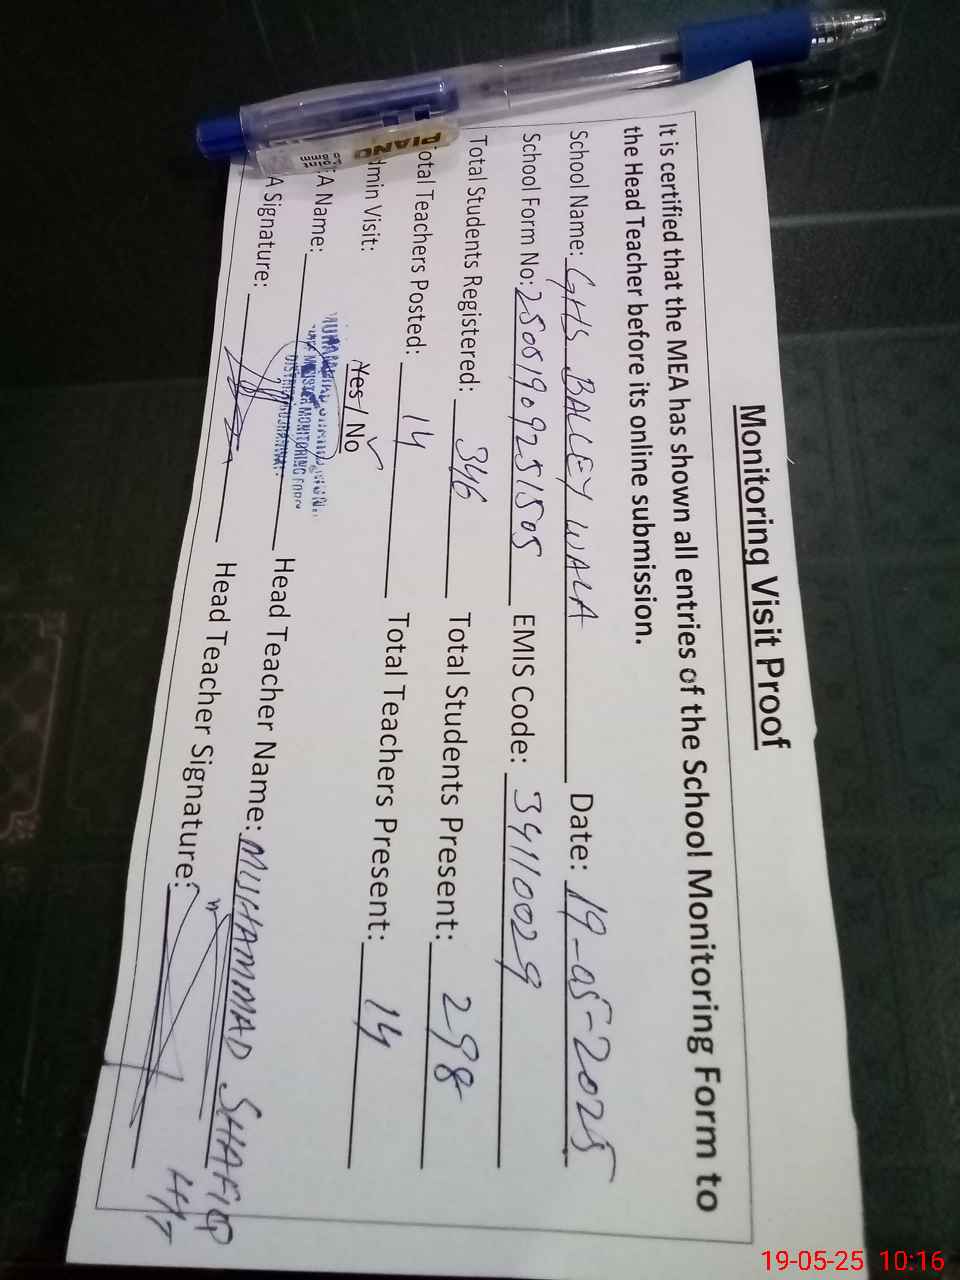 Monitoring Visit Proof
It is certified that the MEA has shown all entries of the School Monitoring Form to
the Head Teacher before its online submission.
School Name: GHS BALLEY WALA Date: 19-05-2025
School Form No: 25051909251505 EMIS Code: 34110029
Total Students Registered: 346 Total Students Present: 298
otal Teachers Posted: 14 Total Teachers Present: 14
dmin Visit: Yes / No
A Name: Head Teacher Name: MUHAMMAD SHAFIQ
A Signature: Head Teacher Signature:
MONITORING
PIANO
19-05-25 10:16